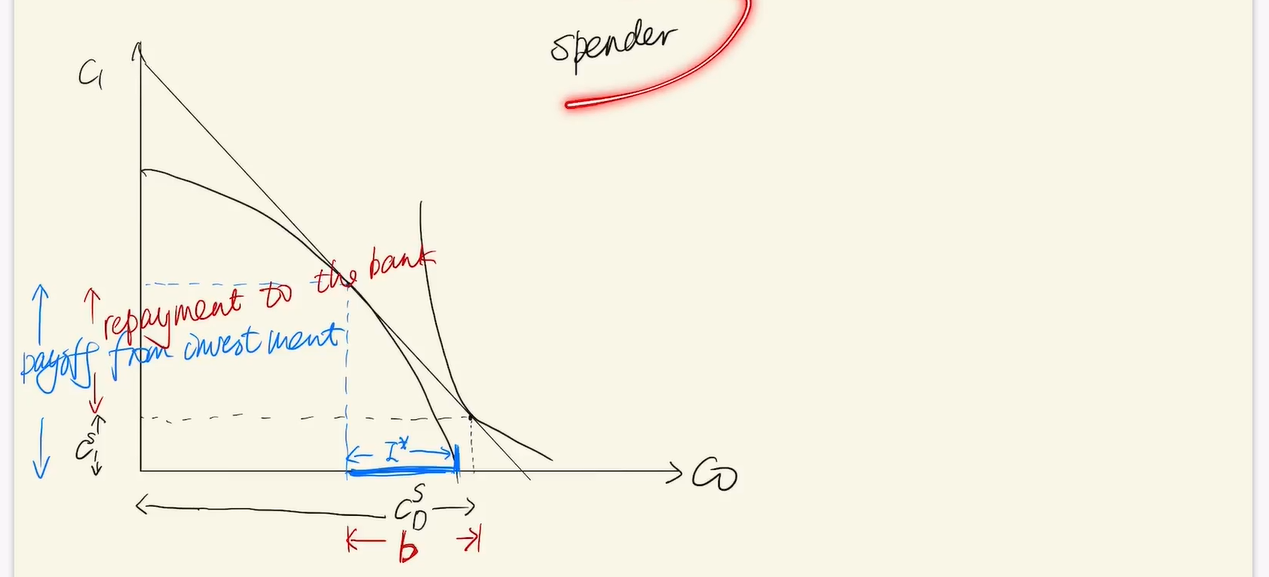 spender
C₁
repayment to the bank
payoff from investment
C₁ˢ
I*
C₀
C₀ˢ
b